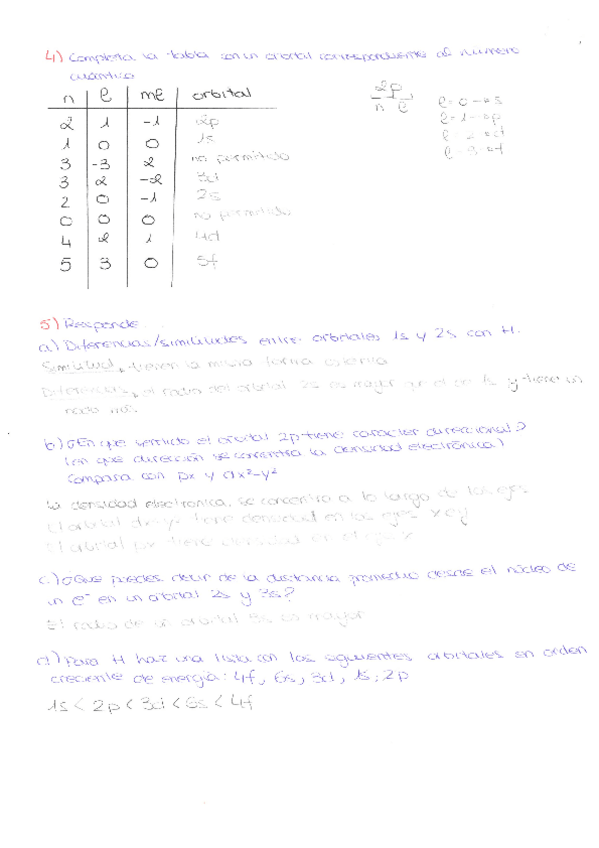 4) Completa la tabla con un orbital correspondiente al número
cuántico
n | l | ml | orbital
2 1 -1 2p
1 0 0 1s
3 -3 2 no permitido
3 2 -2 3d
2 0 -1 2s
0 0 0 no permitido
4 2 1 4d
5 3 0 5f
2p
n l
l = 0 → s
l = 1 → p
l = 2 → d
l = 3 → f
5) Responde
a) Diferencias/similitudes entre orbitales 1s y 2s con H.
Similitud, tienen la misma forma
Diferencias, el radio del orbital 2s es mayor que el de 1s y tiene un
nodo más.
b) ¿En que sentido el orbital 2p tiene caracter direccional?
(en que dirección se concentra la densidad electrónica)
Compara con px y dx²-y²
La densidad electronica, se concentra a lo largo de los ejes
El orbital tiene densidad en los ejes x e y
El orbital px tiene densidad en el eje x
c) ¿Que puedes decir de la distancia promedio desde el núcleo de
un e⁻ en un orbital 2s y 3s?
El radio de un orbital 3s es mayor
d) Para H haz una lista con los siguientes orbitales en orden
creciente de energía: 4f, 6s, 3d, 1s, 2p
1s < 2p < 3d < 6s < 4f